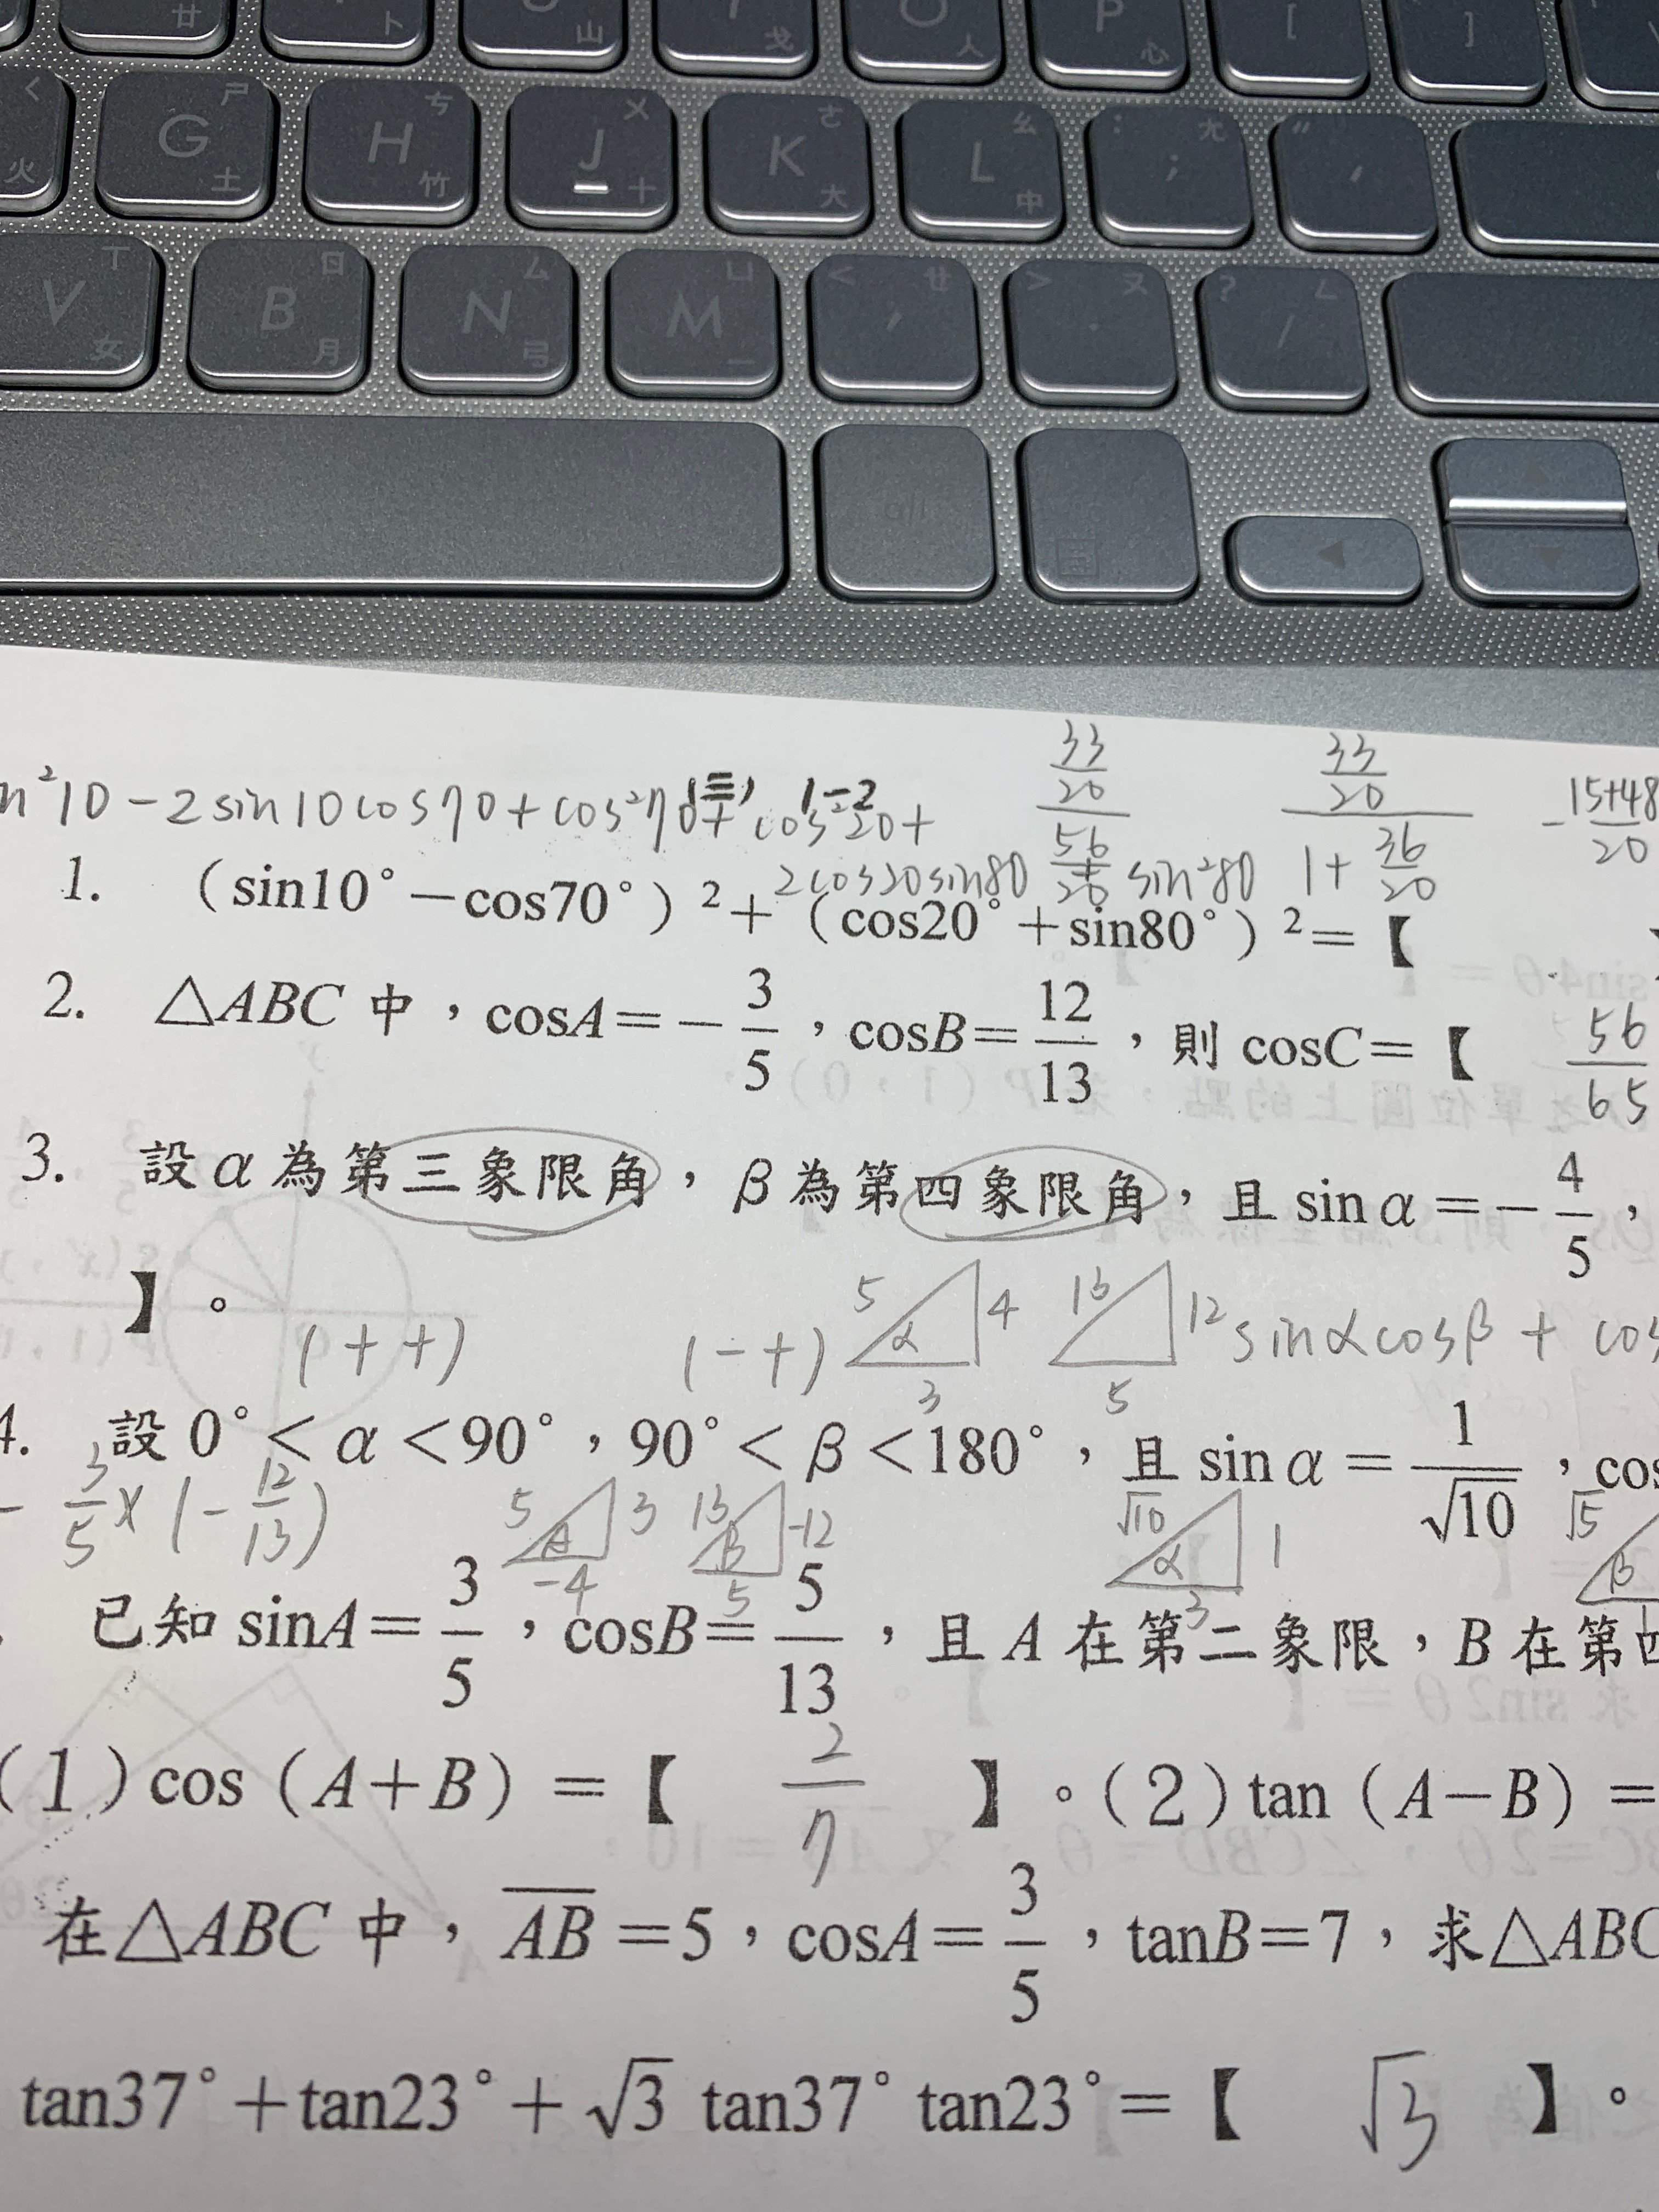 ㄔ
廿
ㄕ
卜
山
戈
O
人
P
心
[
]
火
G
ㄕ
土
H
ㄘ
竹
J
ㄨ
十
K
ㄜ
大
L
ㄠ
中
:
;
ㄤ
"
'
V
ㄒ
女
B
ㄖ
月
N
ㄙ
弓
M
ㄩ
一
<
,
ㄝ
>
.
ㄡ
?
/
ㄥ
alt
n²10-2sin10cos70+cos²70+cos²20+
33/20
33/20
15+48/20
2cos20sin80 56/20 + sin²80 1+36/20
1. (sin10°-cos70°)²+(cos20°+sin80°)²=【
2. △ABC 中,cosA=-3/5,cosB=12/13,則 cosC=【 56/65
3. 設 α 為第三象限角,β 為第四象限角,且 sin α=-4/5,
】。
(++) (-+) 5 α 4 3 13 12 5 sinαcosβ+cos
4. 設 0°<α<90°,90°<β<180°,且 sin α=1/√10,cos
- 3/5×(-12/13) 5 3 -4 13 β -12 5 √10 α 1 3 √5 β
已知 sinA=3/5,cosB=5/13,且 A 在第二象限,B 在第四
(1)cos(A+B)=【 2/7 】。(2)tan(A-B)=
在△ABC 中,AB=5,cosA=3/5,tanB=7,求△ABC
tan37°+tan23°+√3 tan37° tan23°=【 √3 】。